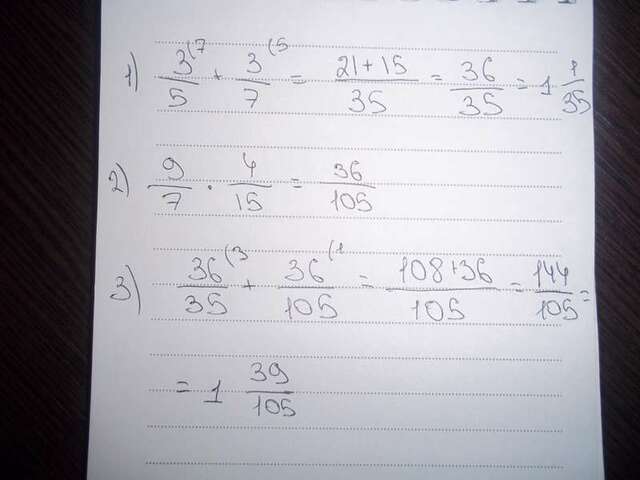 1) 3(7/5 + 3(5/7 = 21+15/35 = 36/35 = 1 1/35
2) 9/7 · 4/15 = 36/105
3) 36(3/35 + 36(1/105 = 108+36/105 = 144/105 =
= 1 39/105